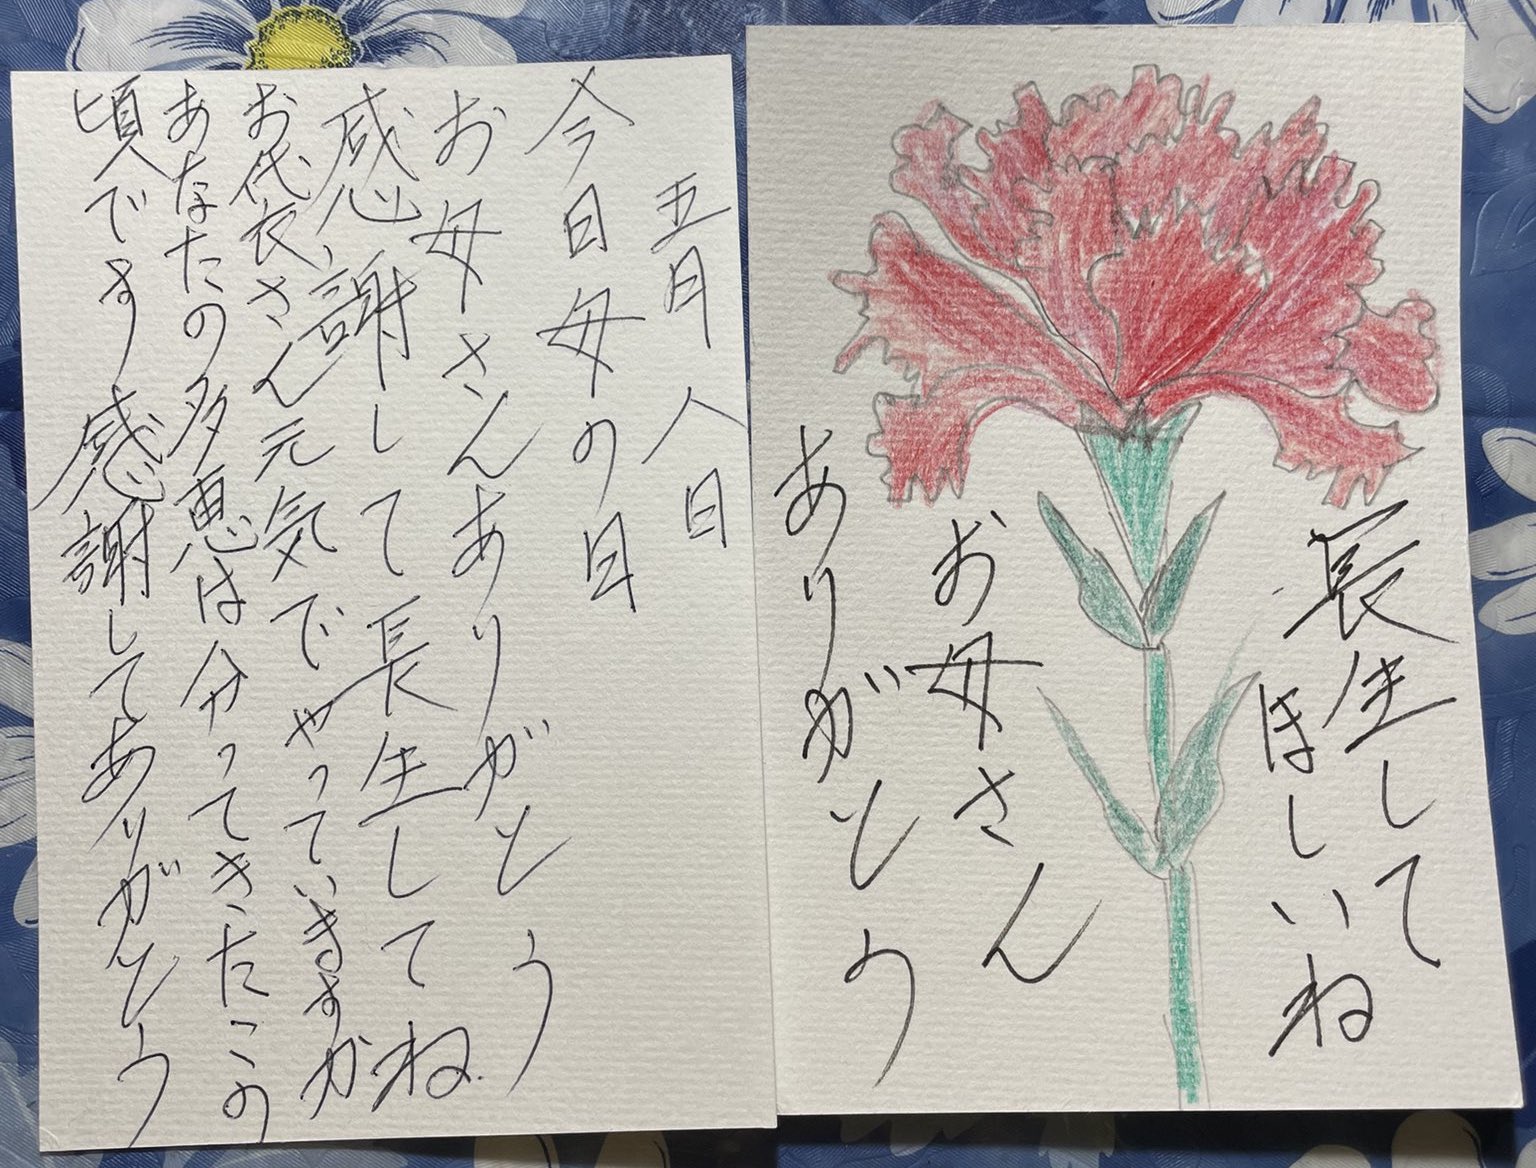 長生して
ほしいね
お母さん
ありがとう
五月八日
今日母の日
お母さんありがとう
感謝して長生してね
お代衣さん元気でやっていますか
あなたの多恵は分ってきたこの
頃です感謝してありがとう